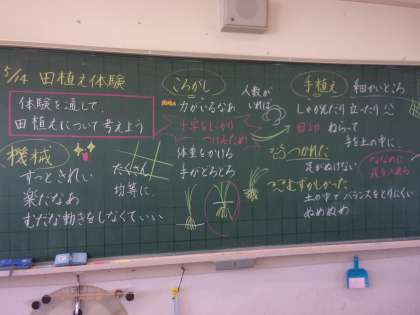 5/14 田植え体験
体験を通して、
田植えについて考えよう
機械
ずっときれい
楽だなあ
むだな動きをしなくていい
たくさん
均等に
ころがし
力がいるなあ
人数が
いれば
十字をしっかり
つけるため
体重をかける
手がどろどろ
手植え
細かいところ
しゃがんだり 立ったり
ねらって
手を土の中に
つかれた
足がぬけない
ななめに
足を入れる
むずかしかった
土の中で バランスをとりにくい
ぬめぬめ